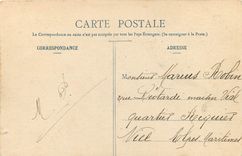 CARTE POSTALE
La Correspondance au recto n'est pas acceptée par tous les Pays Étrangers. (Se renseigner à la Poste.)
CORRESPONDANCE
ADRESSE
Monsieur Marius Robin
rue maison
quartier Riquier
Nice Alpes Maritimes